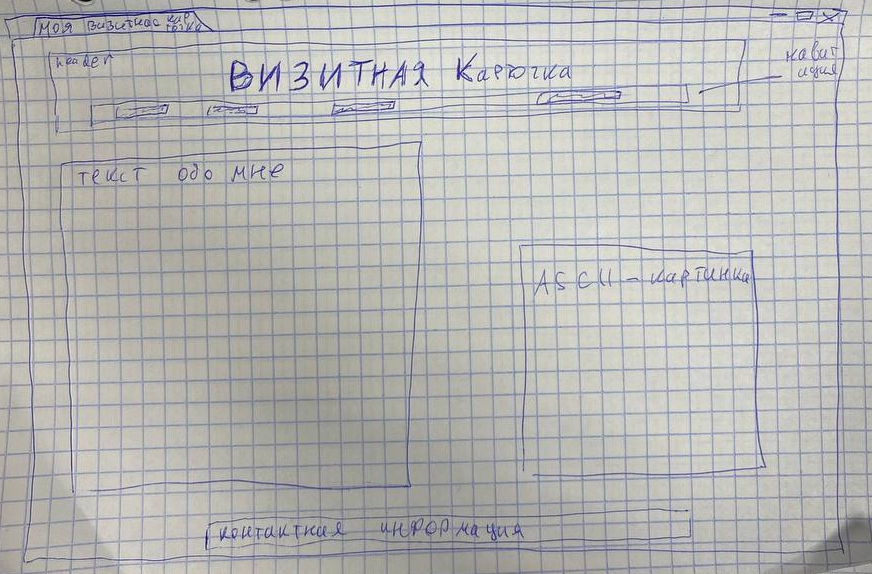 моя визитная кар
точка
header
ВИЗИТНАЯ Карточка
навиг
ация
текст обо мне
ASCII - картинка
контактная информация